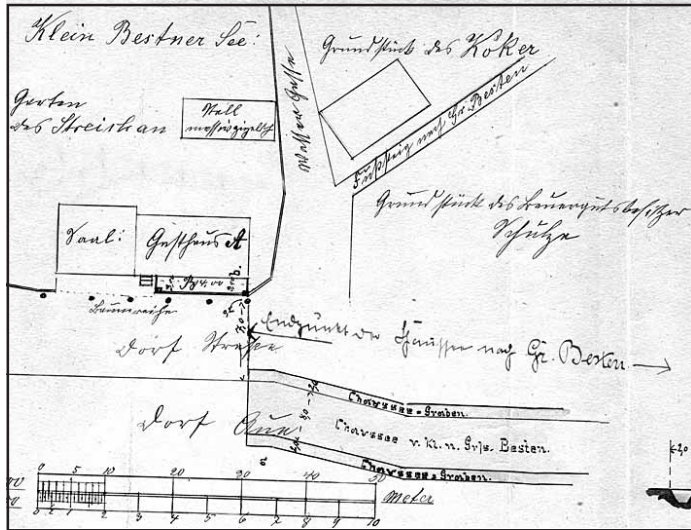 Klein Bestner See:
Grundstück des Köker
Garten
des Streichan
Stall
massiv ziegeldach
Wasser Gasse
Fußsteig nach Gr. Besten
Grundstück des Bauergutsbesitzer
Schulze
Saal:
Gasthaus A
b.
Baumreihe
Endpunkt der Chaussee nach Gr. Besten
Dorf Strasse
Dorf Aue:
Chaussee-Graben.
Chaussee v. Kl. n. Grss. Besten.
Chaussee-Graben.
0 10 20 30 40 50
Meter
2 1 2 3 4 5 6 7 8 9 10
2,0